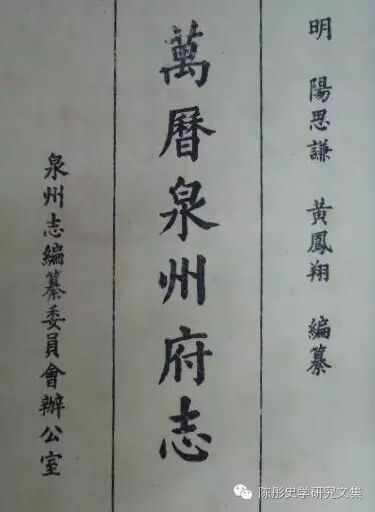 明 陽思謙 黃鳳翔 編纂
萬曆泉州府志
泉州志編纂委員會辦公室
陈彤史学研究文集